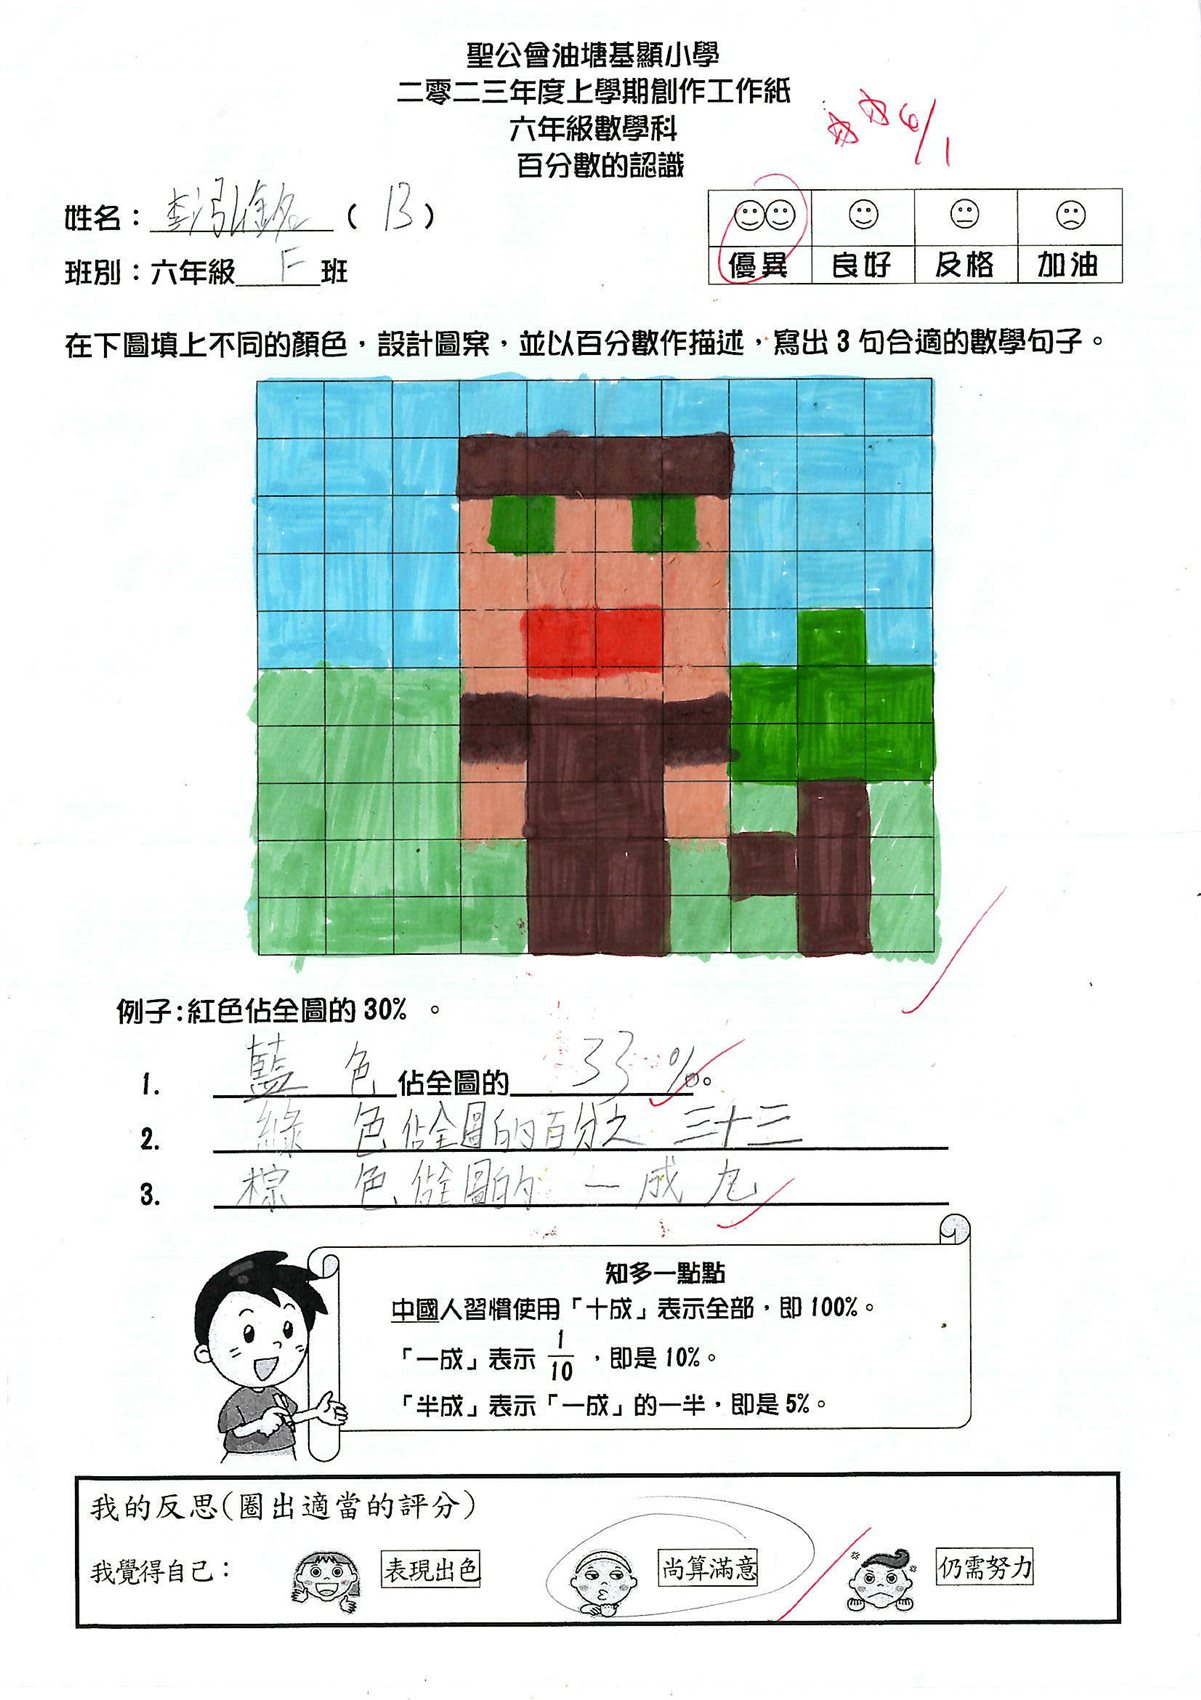 聖公會油塘基顯小學
二零二三年度上學期創作工作紙
六年級數學科
百分數的認識
6/1
姓名： ( 13 )
班別：六年級 F 班
優異 良好 及格 加油
在下圖填上不同的顏色，設計圖案，並以百分數作描述，寫出3句合適的數學句子。
例子:紅色佔全圖的30% 。
1. 藍 色佔全圖的 33 %。
2. 綠 色佔全圖的百分之 三十三
3. 棕 色佔全圖的 一成九
知多一點點
中國人習慣使用「十成」表示全部，即100%。
「一成」表示 1/10 ，即是10%。
「半成」表示「一成」的一半，即是5%。
我的反思(圈出適當的評分)
我覺得自己： 表現出色 尚算滿意 仍需努力